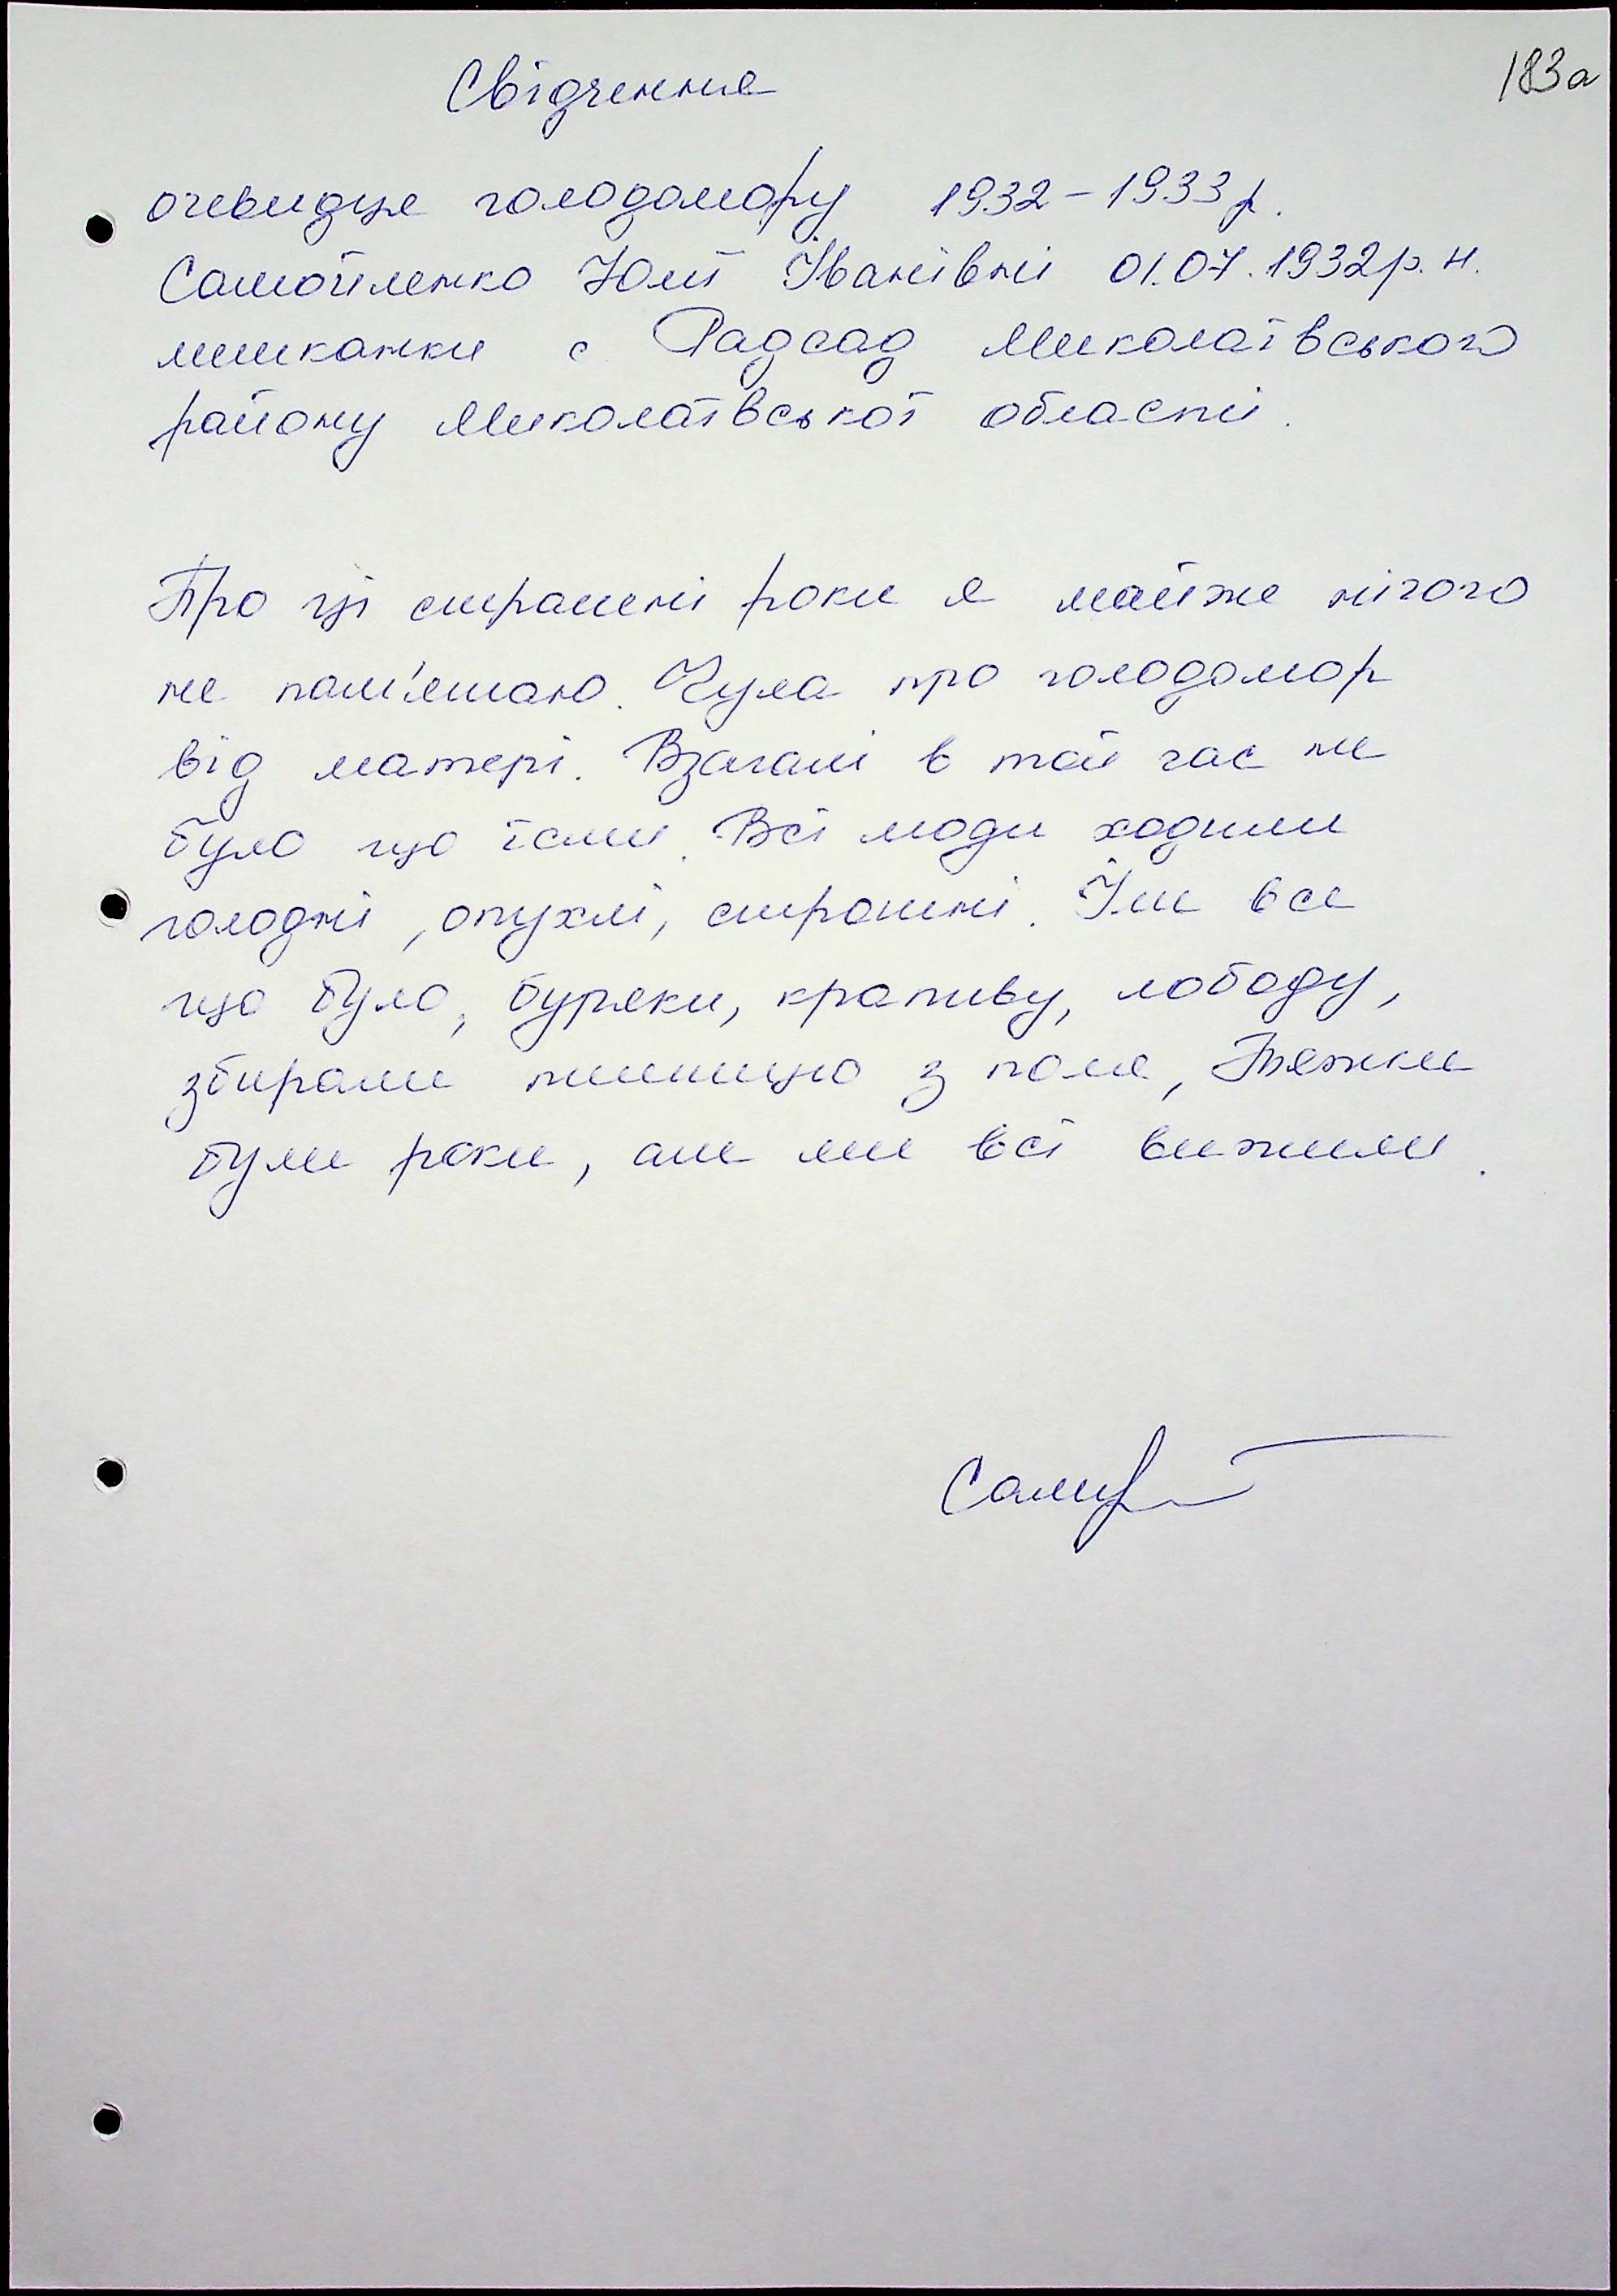 183а
Свідчення
очевидця голодомору 1932-1933 р.
Самойленко Юлії Іванівни 01.07.1932 р. н.
мешканки с. Радсад Миколаївського
району Миколаївської області.
Про ці страшні роки я майже нічого
не пам'ятаю. Чула про голодомор
від матері. Взагалі в той час не
було що їсти. Всі люди ходили
голодні, опухлі, страшні. Їли все
що було, буряки, крапиву, лободу,
збирали пшеницю з поля, Тяжки
були роки, але ми всі вижили.